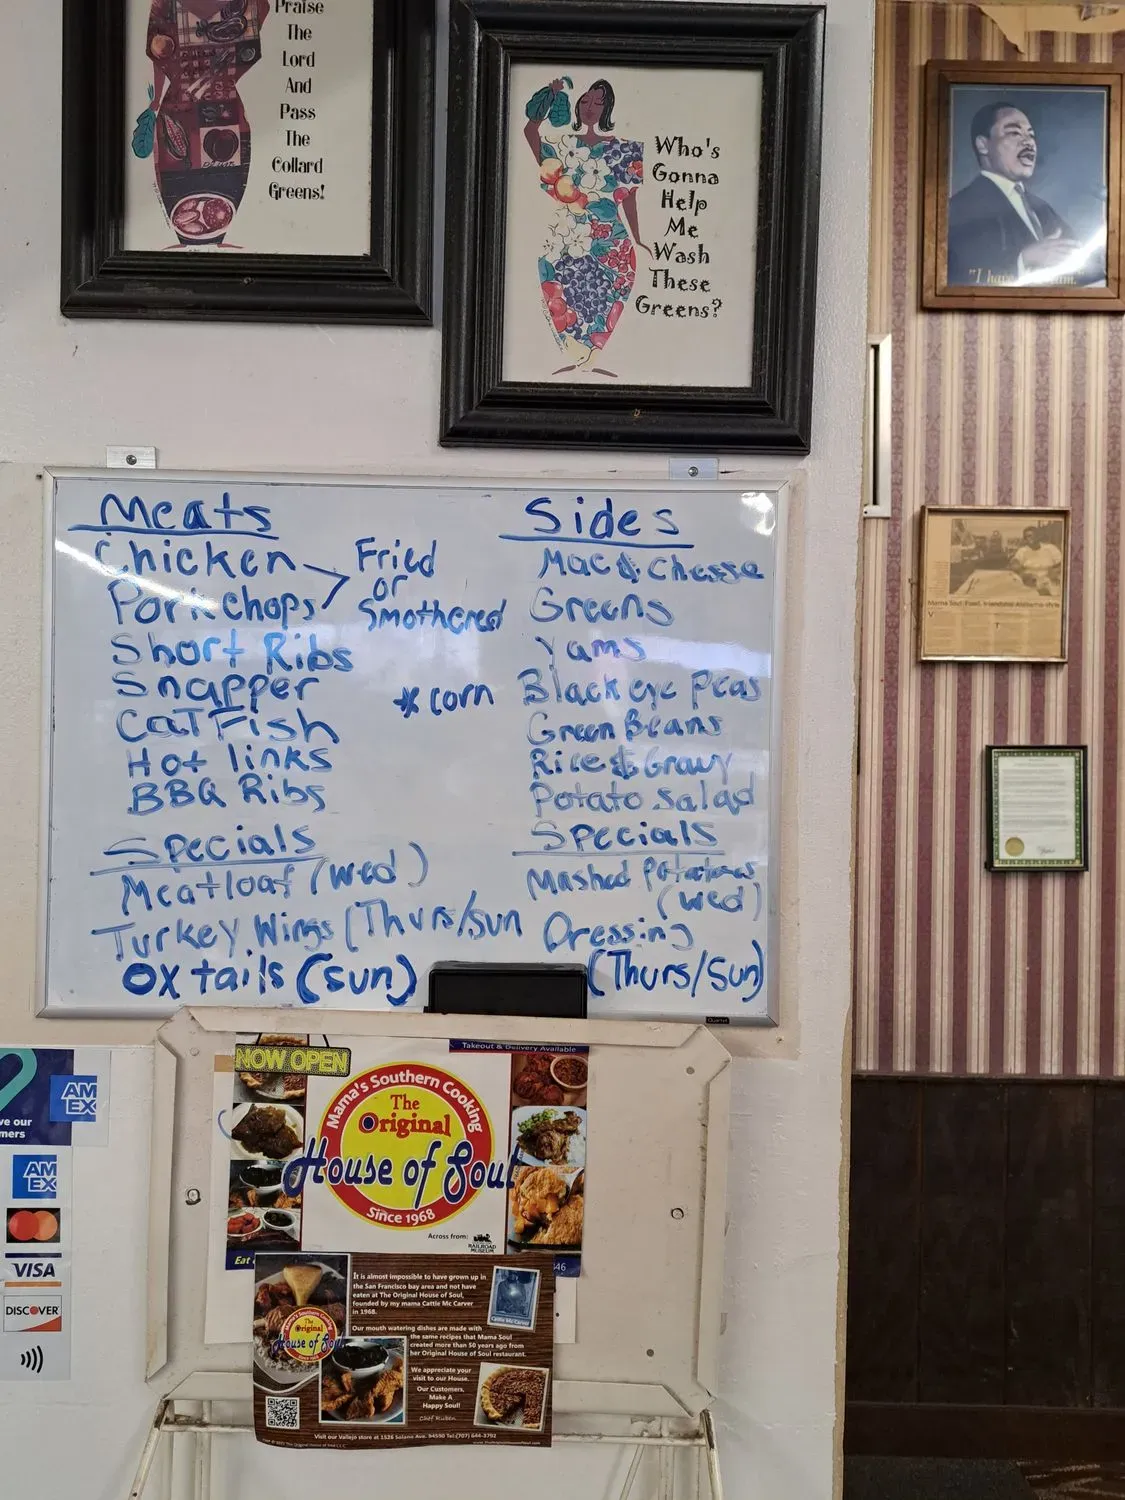 Praise
The
Lord
And
Pass
The
Collard
Greens!
Who's
Gonna
Help
Me
Wash
These
Greens?
"I have
Mama Soul Food, friendship Alabama-style
Meats
Chicken
Porkchops
Fried
or
Smothered
Short Ribs
Snapper
CatFish
Hot links
BBQ Ribs
Specials
Meatloaf (Wed)
Turkey Wings (Thurs/Sun
Oxtails (Sun)
*corn
Sides
Mac & Chesse
Greens
Yams
Black eye Peas
Green Beans
Rice & Gravy
Potato Salad
Specials
Mashed Potatoes
(Wed)
Dressing
(Thurs/Sun)
Quartet
NOW OPEN
Takeout & Delivery Available
Mama's Southern Cooking
The
Original
House of Soul
Since 1968
Across from:
RAILROAD
MUSEUM
Eat
46
It is almost impossible to have grown up in
the San Francisco bay area and not have
eaten at The Original House of Soul,
founded by my mama Cattie Mc Carver
in 1968.
Cattie Mc Carver
Our mouth watering dishes are made with
the same recipes that Mama Soul
created more than 50 years ago from
her Original House of Soul restaurant.
We appreciate your
visit to our House.
Our Customers,
Make A
Happy Soul!
Chef Ruben
Mama's Southern Cooking
The
Original
House of Soul
Visit our Vallejo store at 1526 Solano Ave. 94590 Tel:(707) 644-3792
ve our
mers
AM
EX
AM
EX
VISA
DISCOVER